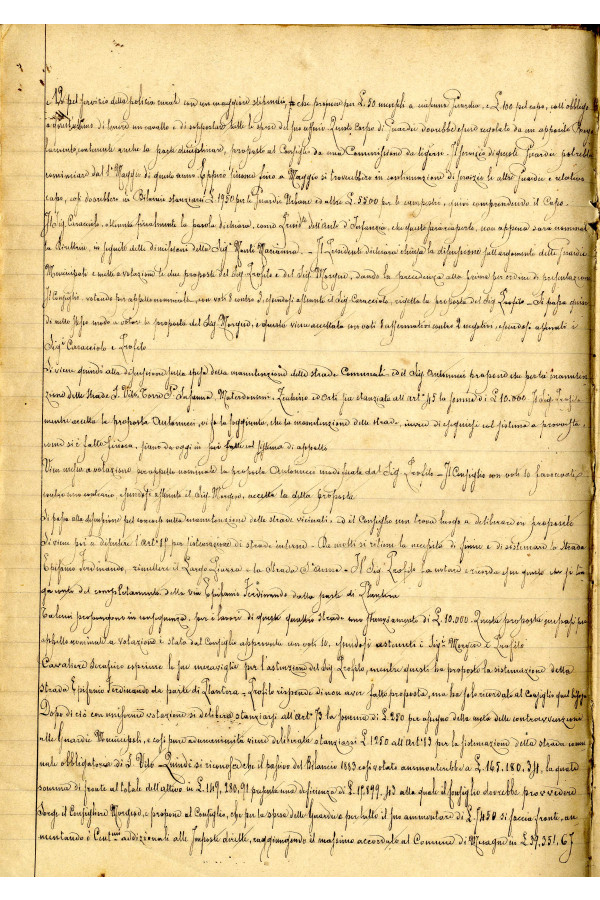 e 12 pel servizio della polizia rurale con un maggiore stipendio, che propone per L. 50 mensili a ciascuna Guardia, e L. 100 pel capo, coll'obbligo
a quest'ultimo di tenere un cavallo e di sopportare tutte le spese. Questo corpo di Guardie dovrebbe essere regolato da un apposito Rego
lamento, contenente anche la parte disciplinare, proposto al Consiglio da una Commissione da eligersi. Il servizio di queste Guardie potrebbe
cominciare dal 1° Maggio di questo anno. E siccome fino a Maggio si troverebbero in continuazione di servizio le altre Guardie e relativo
capo, così dovrebbe in Bilancio stanziarsi L. 1950 per le Guardie Urbane ed altre L. 5500 per le campestri, quivi comprendendo il Capo.
Il Sig. Caracciolo, ottenuta finalmente la parola dichiara, come Presid.te dell'Asilo d'Infanzia, che
la Direttrice, in seguito delle dimissioni della Sig. Monti Marianna. – Il Presidente dichiara chiusa la discussione sull'ordinamento delle Guardie
Municipali e mette a votazione le due proposte del Sig. Profilo e del Sig. Morgese, dando la precedenza alla prima per ordine di presentazione
Il Consiglio, votando per appello nominale, con voti 8 contro 3, essendosi astenuto il Sig. Caracciolo, rigetta la proposta del Sig. Profilo – Si passa quindi
di nello stesso modo a votare la proposta del Sig. Morgese, e questa viene accettata con voti 8 affermativi contro 2 negativi, essendosi astenuti i
Sig.i Caracciolo e Profilo
Si viene quindi alla discussione sulla spesa della manutenzione delle strade Comunali – ed il Sig. Antonucci propone che per la manuten
zione delle strade S. Vito, Torre S. Susanna, Materdomini, ed Orti sia stanziata all'art.° 45 la somma di L. 10.000. Il Sig. Profilo
mentre accetta la proposta Antonucci, vi fa l'aggiunta, che la manutenzione delle strade, invece di eseguirsi col sistema a provvista
come si è fatto finora, siano da oggi in poi fatte col sistema di appalto
Vien messa a votazione per appello nominale la proposta Antonucci modificata dal Sig. Profilo – Il Consiglio con voti 10 favorevoli,
contro uno contrario, essendosi astenuto il Sig. Morgese, accetta la detta proposta
Si passa alla discussione pel concerto sulla manutenzione delle strade vicinali – ed il Consiglio non trova luogo a deliberare su proposito
Si viene poi a discutere l'Art.° 57 per sistemazione di strade interne – Da molti si ritiene la necessità di finire e di sistemare la strada
Epifanio Ferdinando, rimettere il Largo e la Strada S. Anna – Il Sig. Profilo fa notare e ricorda che questo
conto del completamento della via Epifanio Ferdinando dalla parte di Plantera
Taluni propongono in conseguenza, per i lavori di queste quattro strade uno stanziamento di L. 10.000. Questa proposta messa per
appello nominale a votazione è stata dal Consiglio approvata con voti 10, essendosi astenuti i Sig.i Morgese e Profilo
Cavaliere Serafino esprime la sua meraviglia per l'astensione del Sig. Profilo, mentre questi ha proposto la sistemazione della
strada Epifanio Ferdinando da parte di Plantera – Profilo risponde di non aver fatto proposta, ma ha solo ricordato al Consiglio quel bisogno
Dopo di ciò con uniforme votazione si delibera stanziarsi all'Art.° 73 la somma di L. 250 per assegno della metà delle contravvenzioni
alle Guardie Municipali, e così pure ad unanimità viene deliberato stanziarsi L. 1250 all'Art.° 83 per la sistemazione della strada comu
nale obbligatoria di S. Vito – Quindi si riconosce che il passivo del Bilancio 1883 così votato ammonterebbe a L. 165.180.34, la quale
somma di fronte al totale dell'attivo in L. 149,280,91 presenta una deficienza di L. 17,899,43 alla quale il Consiglio dovrebbe provvedere
Sorge il Consigliere Morgese, e propone al Consiglio, che per la spesa delle Guardie per tutto il suo ammontare di L. 7450 si faccia fronte, au
mentando i Cent.mi addizionali alle Imposte dirette, raggiungendo il massimo accordato al Comune di Mesagne in L. 39,351.67